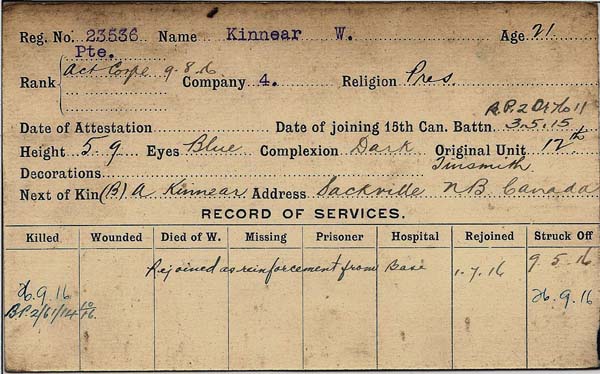 Reg. No. 23536 Name Kinnear W. Age 21
Pte.
Rank Act Corpl 9.8.16 Company 4. Religion Pres.
Date of Attestation Date of joining 15th Can. Battn. 3.5.15
Height 5.9 Eyes Blue Complexion Dark Original Unit 12th
Decorations Tinsmith
Next of Kin (B) A Kinnear Address Sackville NB Canada
RECORD OF SERVICES.
Killed Wounded Died of W. Missing Prisoner Hospital Rejoined Struck Off
Rejoined as reinforcement from Base 1.7.16 9.5.16
26.9.16 26.9.16
B.P.2/61/14